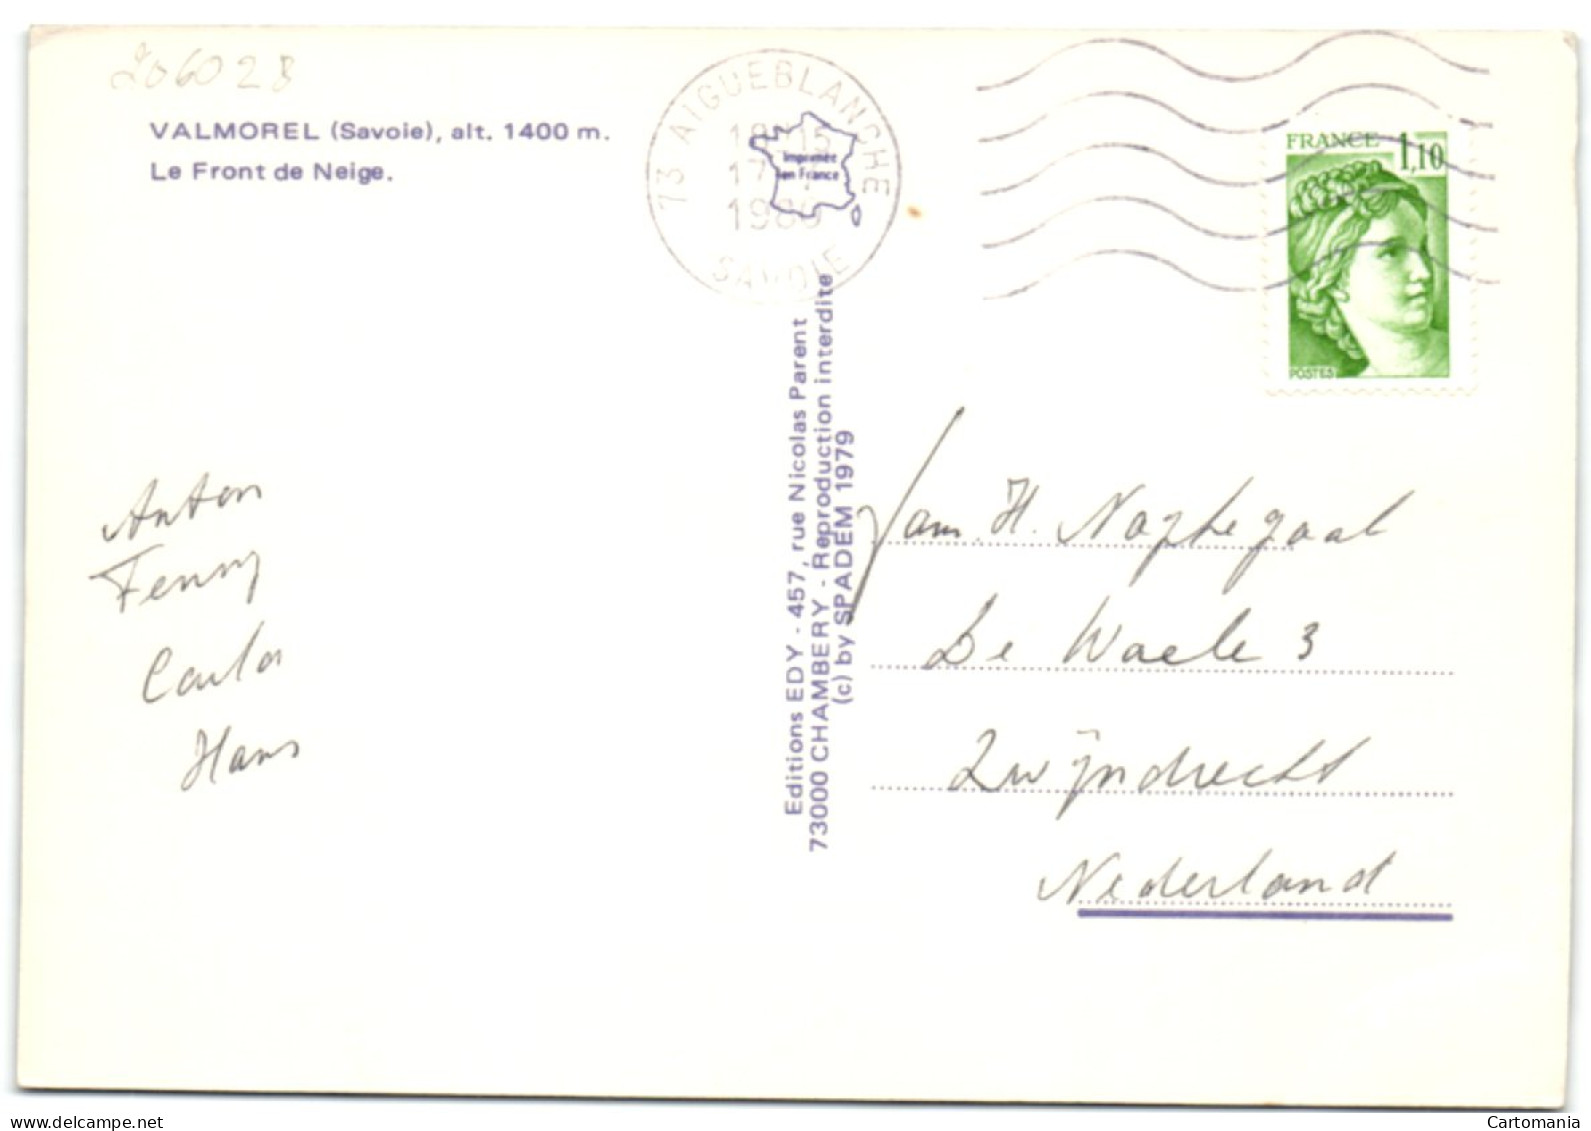 206028
VALMOREL (Savoie), alt. 1400 m.
Le Front de Neige.
73 AIGUEBLANCHE
SAVOIE
Imprimée
en France
FRANCE 1,10
POSTES
Editions EDY - 457, rue Nicolas Parent
73000 CHAMBERY - Reproduction interdite
(c) by SPADEM 1979
Anton
Fenny
Carla
Hans
Fam. H. Naphegaal
De Waele 3
Zwijndrecht
Nederland
Cartomania